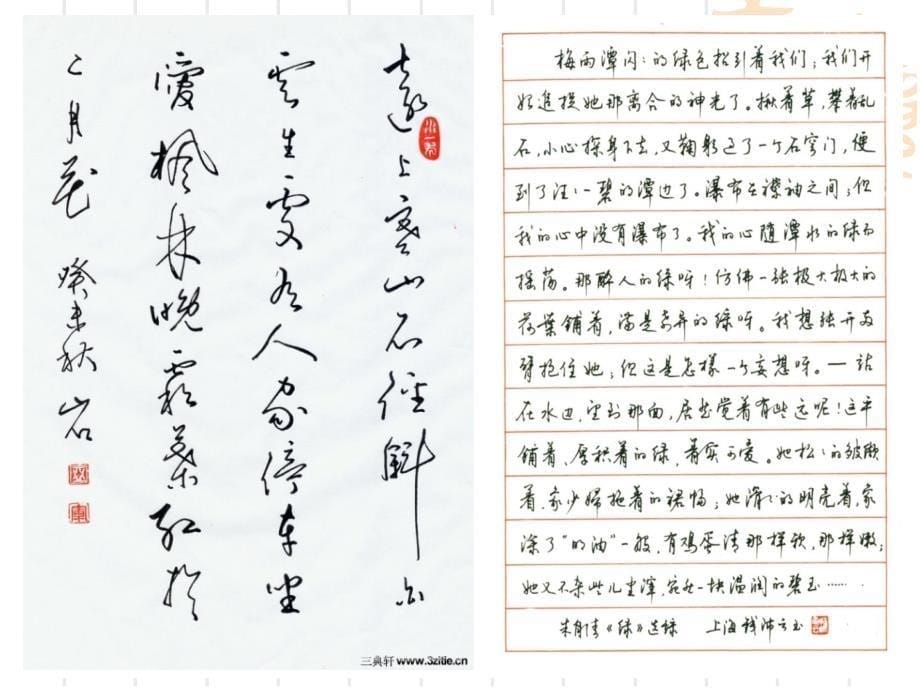 遠上寒山石徑斜白
雲生處有人家停車坐
愛楓林晚霜葉紅於
二月花 癸未秋 岩
三典轩 www.3zitie.cn
梅雨潭闪:的绿色招引着我们;我们开
始追捉她那离合的神光了。揪着草,攀着乱
石,小心探身下去,又鞠躬过了一个石穹门,便
到了汪:一碧的潭边了。瀑布在襟袖之间;但
我的心中没有瀑布了。我的心随潭水的绿而
摇荡。那醉人的绿呀!仿佛一张极大极大的
荷葉铺着,满是奇异的绿呀。我想张开两
臂抱住她;但这是怎样一个妄想呀。— 站
在水边,望到那面,居然觉着有些远呢!这平
铺着、厚积着的绿,着实可爱。她松:的皱缬
着,象少婦拖着的裙幅;她滑:的明亮着,象
涂了"明油"一般,有鸡蛋清那样软,那样嫩;
她又不杂些儿尘滓,宛然一块温润的碧玉……
朱自清《绿》选录 上海 钱沛云书